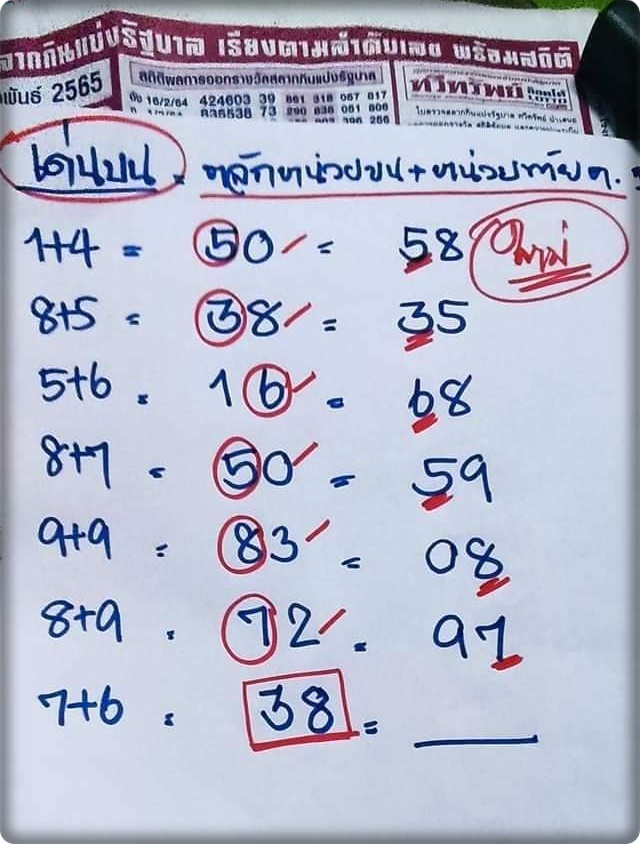 ลากกินแบ่งรัฐบาล เรียงตามลำดับเลข พร้อมสถิติ
พันธ์ 2565
สถิติผลการออกรางวัลสลากกินแบ่งรัฐบาล
ทวีทรัพย์
16/2/64 424603 39 861 318 067 817
835538 73 290 838 061 806
เด่นบน = หลักหน่วยบน+หน่วยท้าย
1+4 = 50 = 58 ใหม่
8+5 = 38 = 35
5+6 = 16 = 68
8+7 = 50 = 59
9+9 = 83 = 08
8+9 = 72 = 97
7+6 = 38 =